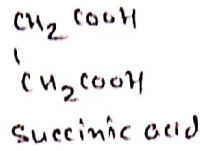 CH2 COOH
|
CH2COOH
Succinic acid